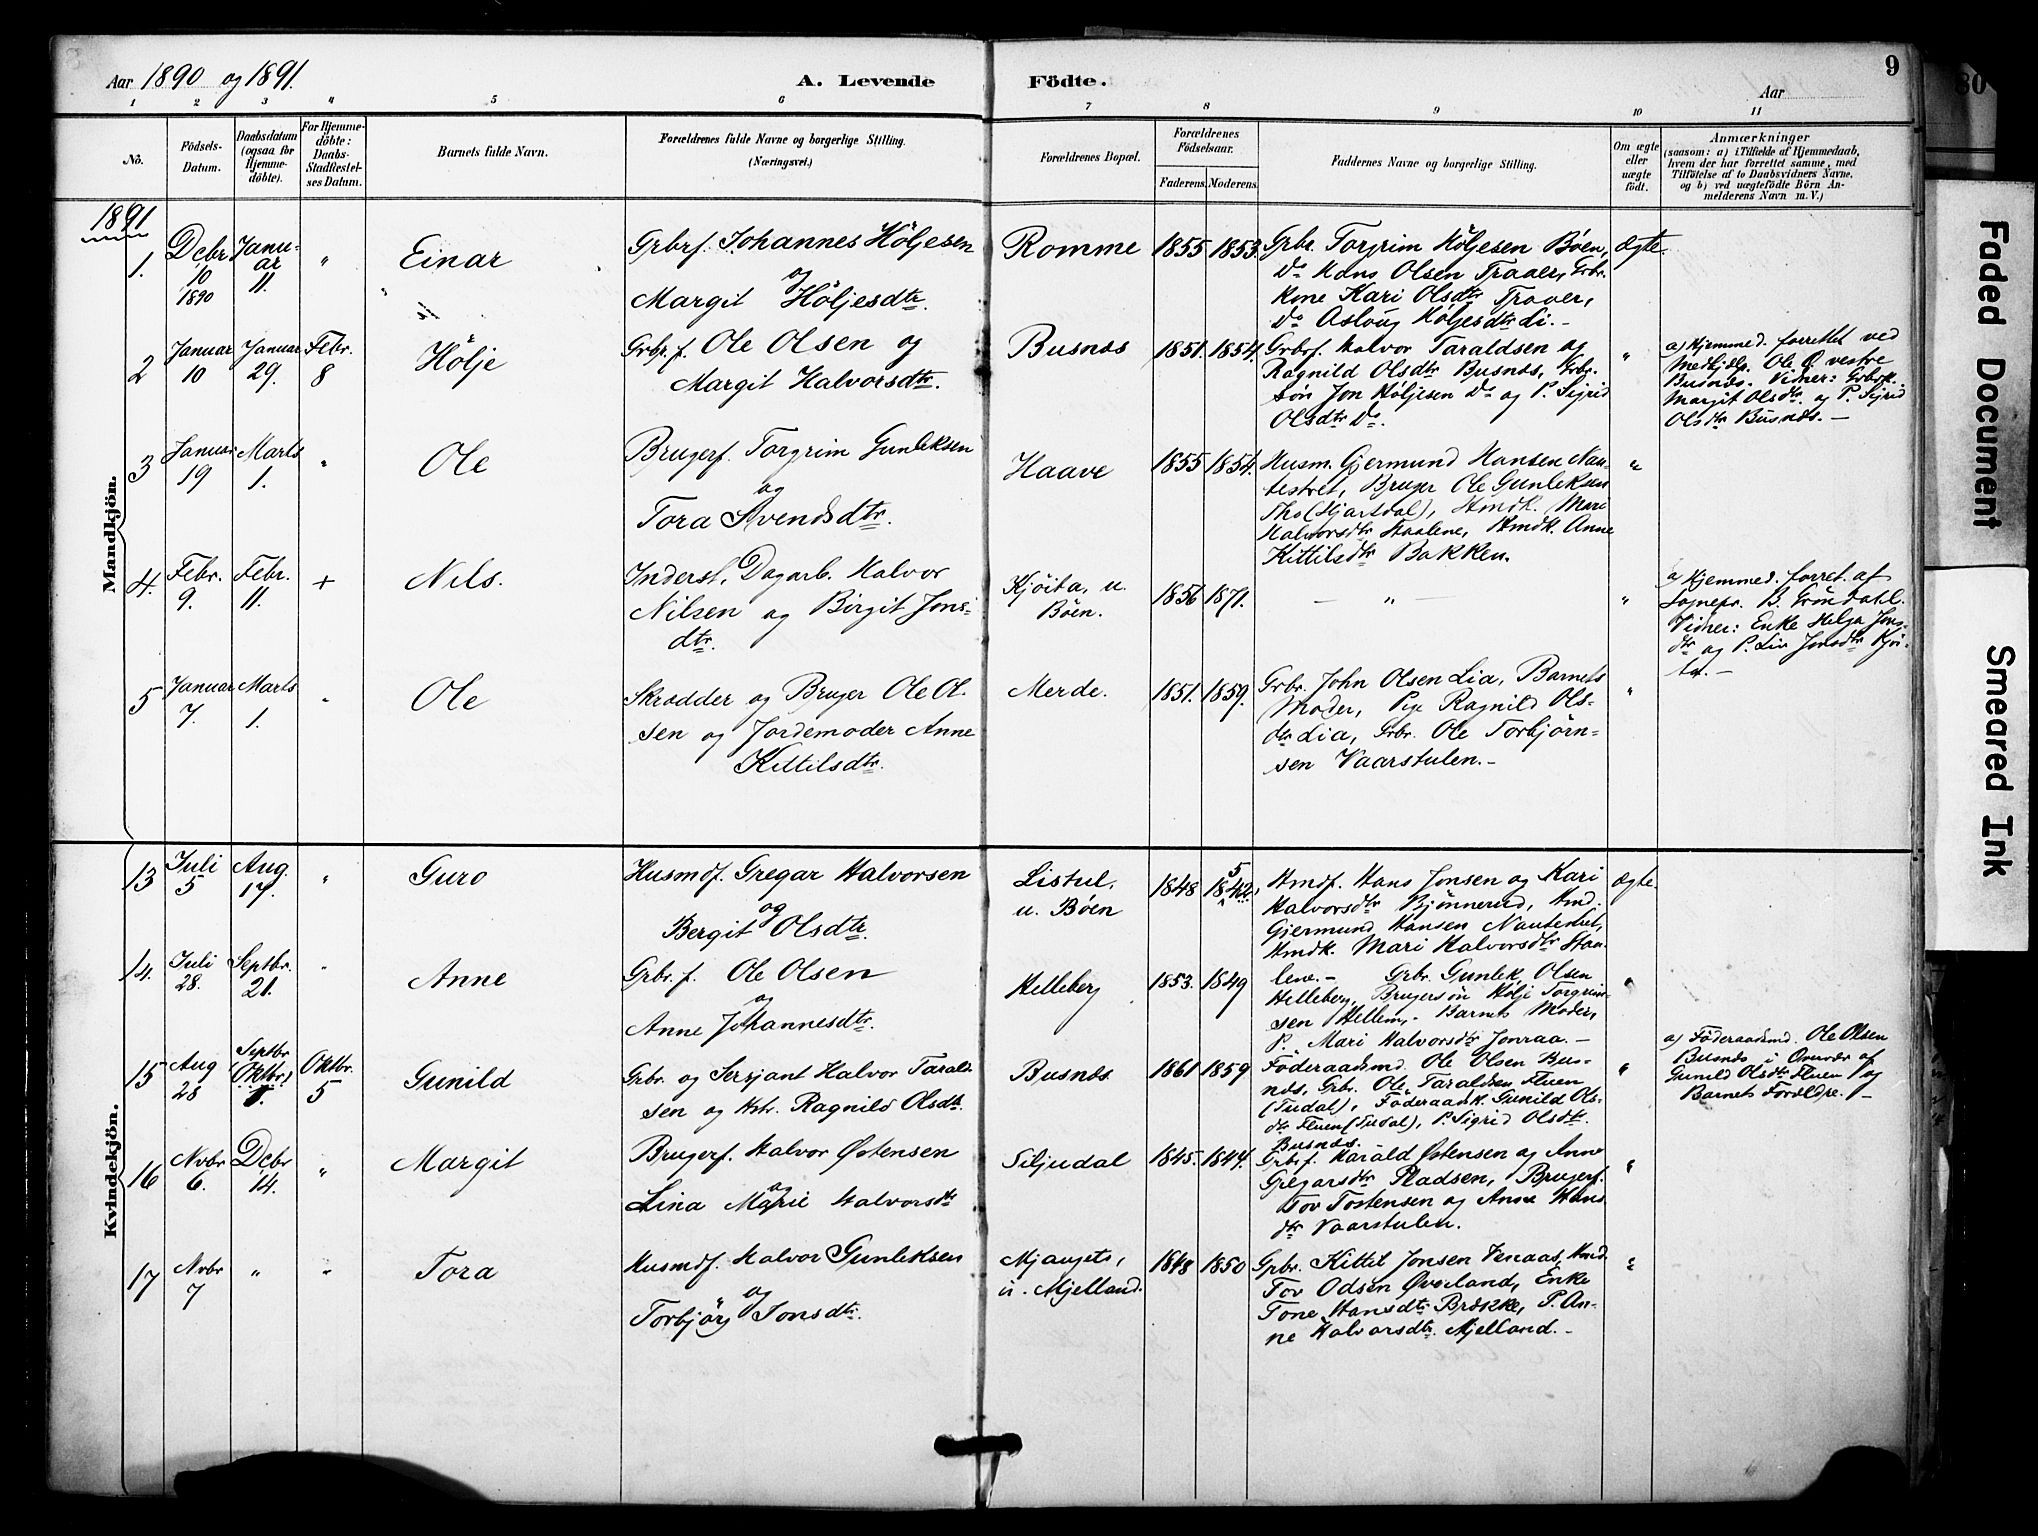 Aar 1890 og 1891.
A. Levende Födte.
Aar
9
1 2 3 4 5 6 7 8 9 10 11
No.
Födsels-
Datum.
Daabsdatum
(ogsaa for
Hjemme-
döbte).
For Hjemme-
döbte:
Daabs-
Stadfæstel-
ses Datum.
Barnets fulde Navn.
Forældrenes fulde Navne og borgerlige Stilling.
(Næringsvei.)
Forældrenes Bopæl.
Forældrenes
Födselsaar.
Faderens. Moderens.
Faddernes Navne og borgerlige Stilling.
Om ægte
eller
uægte
født.
Anmærkninger
(saasom: a) i Tilfælde af Hjemmedaab,
hvem der har forrettet samme, med
Tilföielse af to Daabsvidners Navne,
og b) ved uægtefödte Börn An-
melderens Navn m. V.)
Mandkjön.
1891
1. Debr 10 1890 Janu-
ar
11. " Einar
Grbrf. Johannes Höljesen
og
Margit Höljesdtr.
Romme 1855 1853.
Grbr. Torgrim Höljesen Böen,
Do Hans Olsen Traaer, Grbr.
kone Kari Olsdtr Traaer,
Do Asloug Höljesdtr Li.-
Ægte.
2 Januar 10 Januar 29. Febr. 8 Hölje
Grbr.f. Ole Olsen og
Margit Halvorsdtr.
Busnæs 1851. 1854.
Grbrf. Halvor Taraldsen og
Ragnild Olsdtr Busnæs, Grbr.
søn Jon Höljesen Do og P. Sigrid
Olsdtr Do.
"
a) Hjemmed. forrettet ved
Medhjælp. Ole O. vestre
Busnæs. Vidner: Grbrk.
Margit Olsdtr. og P. Sigrid
Olsdtr Busnæs. —
3 Januar 19 Marts 1. " Ole
Brugerf. Torgrim Gunleksen
og
Tora Svendsdtr.
Haave 1855 1854.
Husm. Gjermund Hansen Nau-
testvet, Bruger Ole Gunleksen
Tho (Hjartdal), Hmdk. Mari
Halvorsdtr Staalene, Hmdk. Anne
Kittilsdtr Bakken.
"
4. Febr. 9. Febr. 11. + Nils.
Inderst, Dagarb. Halvor
Nilsen og Birgit Jons-
dtr.
Kjöita, u.
Böen. 1856 1871.
— " —
"
a) Hjemmed. forret. af
Sognepr. B. Gröndahl.
Vidner: Enke Helga Jons-
dtr og P. Liv Jonsdtr Kjöi-
ta. —
5 Januar 7. Marts 1. " Ole
Skrædder og Bruger Ole Ol-
sen og Jordemoder Anne
Kittilsdtr.
Merde. 1851. 1859.
Grbr. John Olsen Lia, Barnets
Moder, Pige Ragnild Ols-
dtr Lia, Grbr. Ole Torbjörn-
sen Vaarstulen.-
"
Kvindekjön.
13 Juli 5 Aug. 17. " Guro
Husmdf. Gregar Halvorsen
og
Bergit Olsdtr.
Listul,
u. Böen 1848
Hmdf. Hans Jonsen og Kari
Halvorsdtr Bjönnerud, Hmd.
Gjermund Hansen Nautestvet,
Hmdk. Mari Halvorsdtr Staa-
lene. -
ægte.
14. Juli 28. Septbr. 21. " Anne
Grbr.f. Ole Olsen
og
Anne Johannesdtr.
Helleberg 1853. 1849
Grbr. Gunlek Olsen
Helleberg, Brugersön Hölje Torgrim-
sen Hellem,- Barnets Moder,
P. Mari Halvorsdtr Jonraa. —
"
15 Aug 28 Septbr
Oktbr. Oktbr. 5 Gunild
Grbr. og Sersjant Halvor Tarald-
sen og Hstr. Ragnild Olsdtr.
Busnæs 1861 1859
Föderaadsmd. Ole Olsen Bus-
næs, Grbr. Ole Taraldsen Fluen
(Tudal), Föderaadsk. Gunild Ols-
dtr Fluen (Tudal), P. Sigrid Olsdtr.
Busnæs.
"
a) Föderaadsmd. Ole Olsen
Busnæs i Overvær af
Gunild Olsdtr Fluen og
Barnets Forældre. —
16 Nvbr 6. Debr 14. " Margit
Brugerf. Halvor Östensen
og
Lina Marie Halvorsdtr
Siljudal 1845. 1844.
Grbrf. Harald Östensen og Anne
Gregarsdtr Pladsen, Brugerf.
Tov Tostensen og Anne Hans
dtr Vaarstulen.
"
17 Nvbr 7 " " Tora
Husmdf. Halvor Gunleksen
og
Torbjörg Jonsdtr.
Mjaugets,
u. Mjelland. 1848 1850
Grbr. Kittil Jonsen Venaas, Hmd.
Tov Odsen Överland, Enke
Tone Hansdtr Brække, P. An-
ne Halvorsdtr. Mjelland. -
"
Faded Document
Smeared Ink